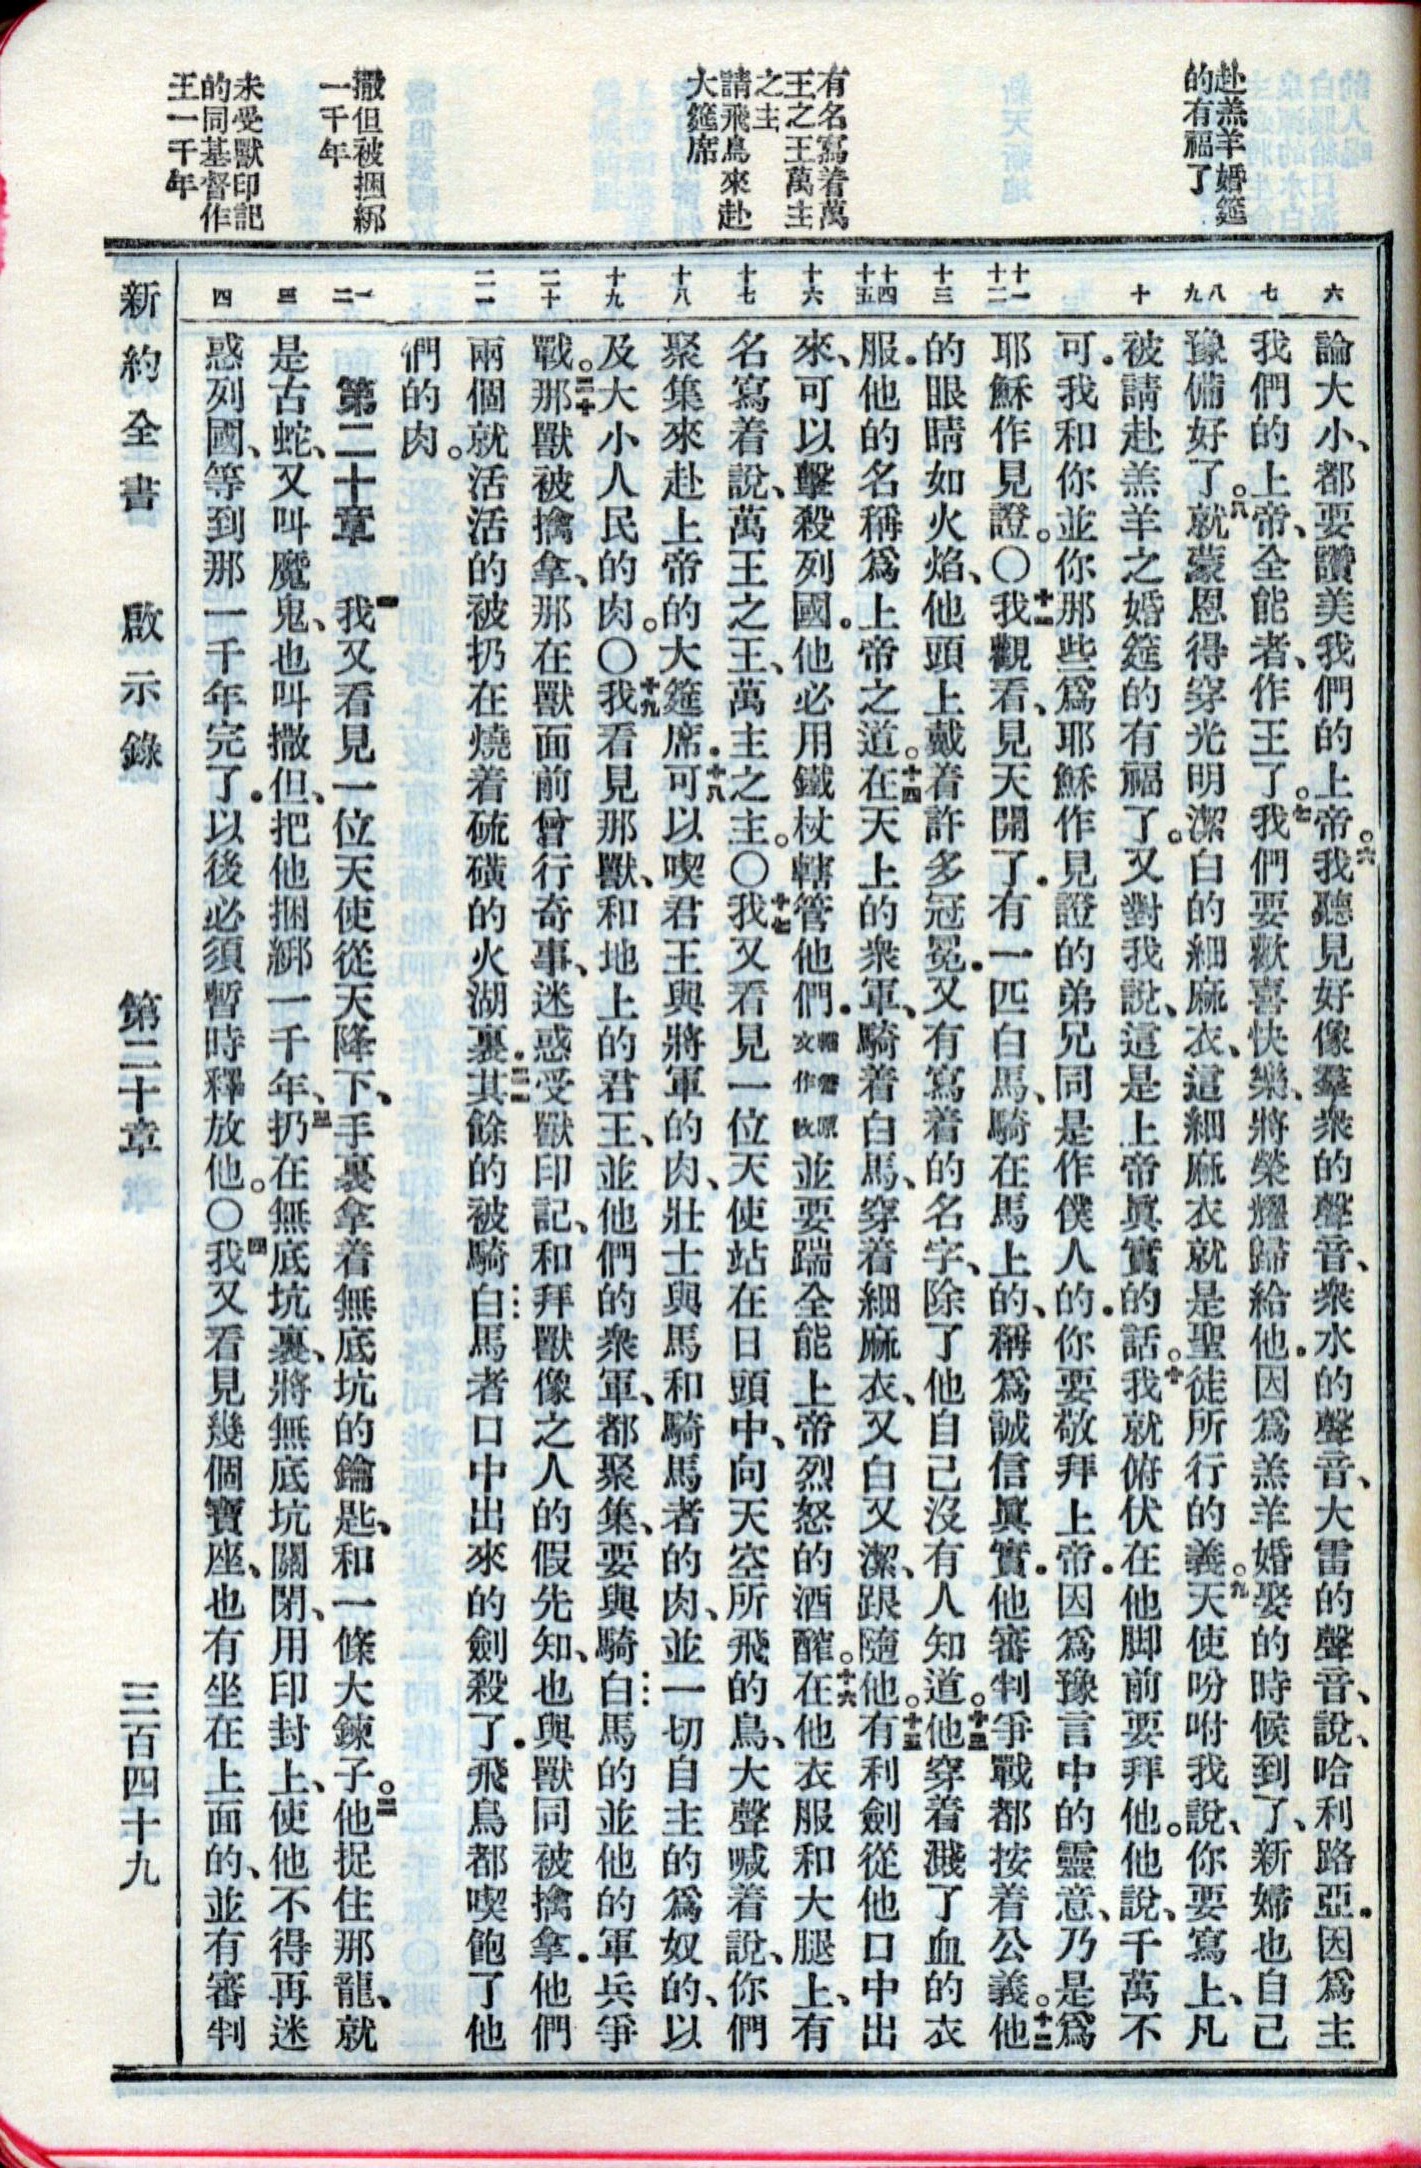 赴羔羊婚筵
的有福了
有名寫着萬
王之王萬主
之主
請飛鳥來赴
大筵席
撒但被捆綁
一千年
未受獸印記
的同基督作
王一千年
六
七
八
九
十
十一
十二
十三
十四
十五
十六
十七
十八
十九
二十
二一
一
二
三
四
論大小、都要讚美我們的上帝。六我聽見好像羣衆的聲音、衆水的聲音、大雷的聲音、說、哈利路亞．因爲主
我們的上帝、全能者、作王了。七我們要歡喜快樂、將榮耀歸給他．因爲羔羊婚娶的時候到了、新婦也自己
豫備好了。八就蒙恩得穿光明潔白的細麻衣、這細麻衣就是聖徒所行的義。九天使吩咐我說、你要寫上、凡
被請赴羔羊之婚筵的有福了。又對我說、這是上帝眞實的話。十我就俯伏在他脚前要拜他。他說、千萬不
可．我和你並你那些爲耶穌作見證的弟兄同是作僕人的．你要敬拜上帝．因爲豫言中的靈意、乃是爲
耶穌作見證。〇十一我觀看、見天開了．有一匹白馬、騎在馬上的、稱爲誠信眞實．他審判爭戰都按着公義。十二他
的眼睛如火焰、他頭上戴着許多冠冕．又有寫着的名字、除了他自己沒有人知道。十三他穿着濺了血的衣
服．他的名稱爲上帝之道。十四在天上的衆軍、騎着白馬、穿着細麻衣、又白又潔、跟隨他。十五有利劍從他口中出
來、可以擊殺列國．他必用鐵杖轄管他們．轄管原文作牧並要踹全能上帝烈怒的酒醡。十六在他衣服和大腿上、有
名寫着說、萬王之王、萬主之主。〇十七我又看見一位天使站在日頭中、向天空所飛的鳥、大聲喊着說、你們
聚集來赴上帝的大筵席．十八可以喫君王與將軍的肉、壯士與馬和騎馬者的肉、並一切自主的爲奴的、以
及大小人民的肉。〇十九我看見那獸、和地上的君王、並他們的衆軍、都聚集、要與騎白馬的並他的軍兵爭
戰。二十那獸被擒拿、那在獸面前曾行奇事、迷惑受獸印記、和拜獸像之人的假先知、也與獸同被擒拿．他們
兩個就活活的被扔在燒着硫磺的火湖裏．二一其餘的被騎白馬者口中出來的劍殺了．飛鳥都喫飽了他
們的肉。
第二十章 一我又看見一位天使從天降下、手裏拿着無底坑的鑰匙、和一條大鍊子。二他捉住那龍、就
是古蛇、又叫魔鬼、也叫撒但、把他捆綁一千年、三扔在無底坑裏、將無底坑關閉、用印封上、使他不得再迷
惑列國、等到那一千年完了．以後必須暫時釋放他。〇四我又看見幾個寶座、也有坐在上面的、並有審判
新約全書 啟示錄 第二十章 三百四十九